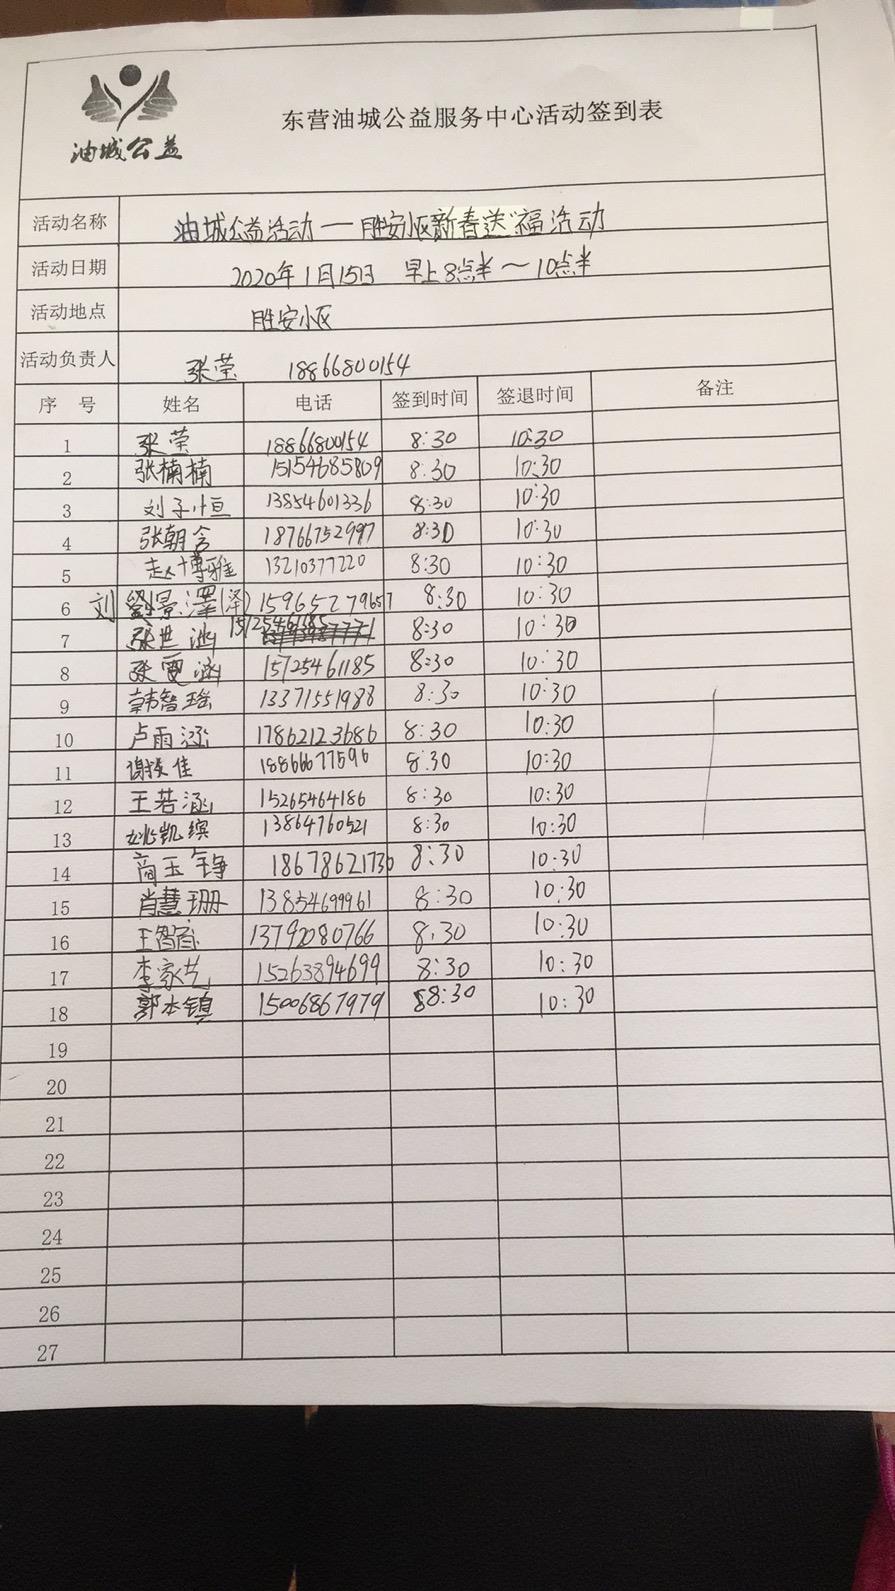 油城公益
东营油城公益服务中心活动签到表
活动名称 油城公益活动一胜安小区新春送"福"活动
活动日期 2020年1月15日 早上8点半～10点半
活动地点 胜安小区
活动负责人 张莹 18866800154
序号 姓名 电话 签到时间 签退时间 备注
1 张莹 18866800154 8:30 10:30
2 张楠楠 15154685809 8:30 10:30
3 刘子恒 13854601336 8:30 10:30
4 张朝 18766752997 8:30 10:30
5 赵博雅 13210377220 8:30 10:30
6 刘 劉景澤(泽) 15965279657 8:30 10:30
7 张世涵 8:30 10:30
8 张雯涵 15725461185 8:30 10:30
9 韩智瑶 13371551988 8:30 10:30
10 卢雨涵 17862123686 8:30 10:30
11 佳 18866677596 8:30 10:30
12 王若涵 15265464186 8:30 10:30
13 姚凯缤 13864760521 8:30 10:30
14 商玉铮 18678621730 8:30 10:30
15 肖慧珊 13854699961 8:30 10:30
16 王智 13792080766 8:30 10:30
17 李家艺 15263894699 8:30 10:30
18 郭本镇 15006867979 88:30 10:30
19
20
21
22
23
24
25
26
27